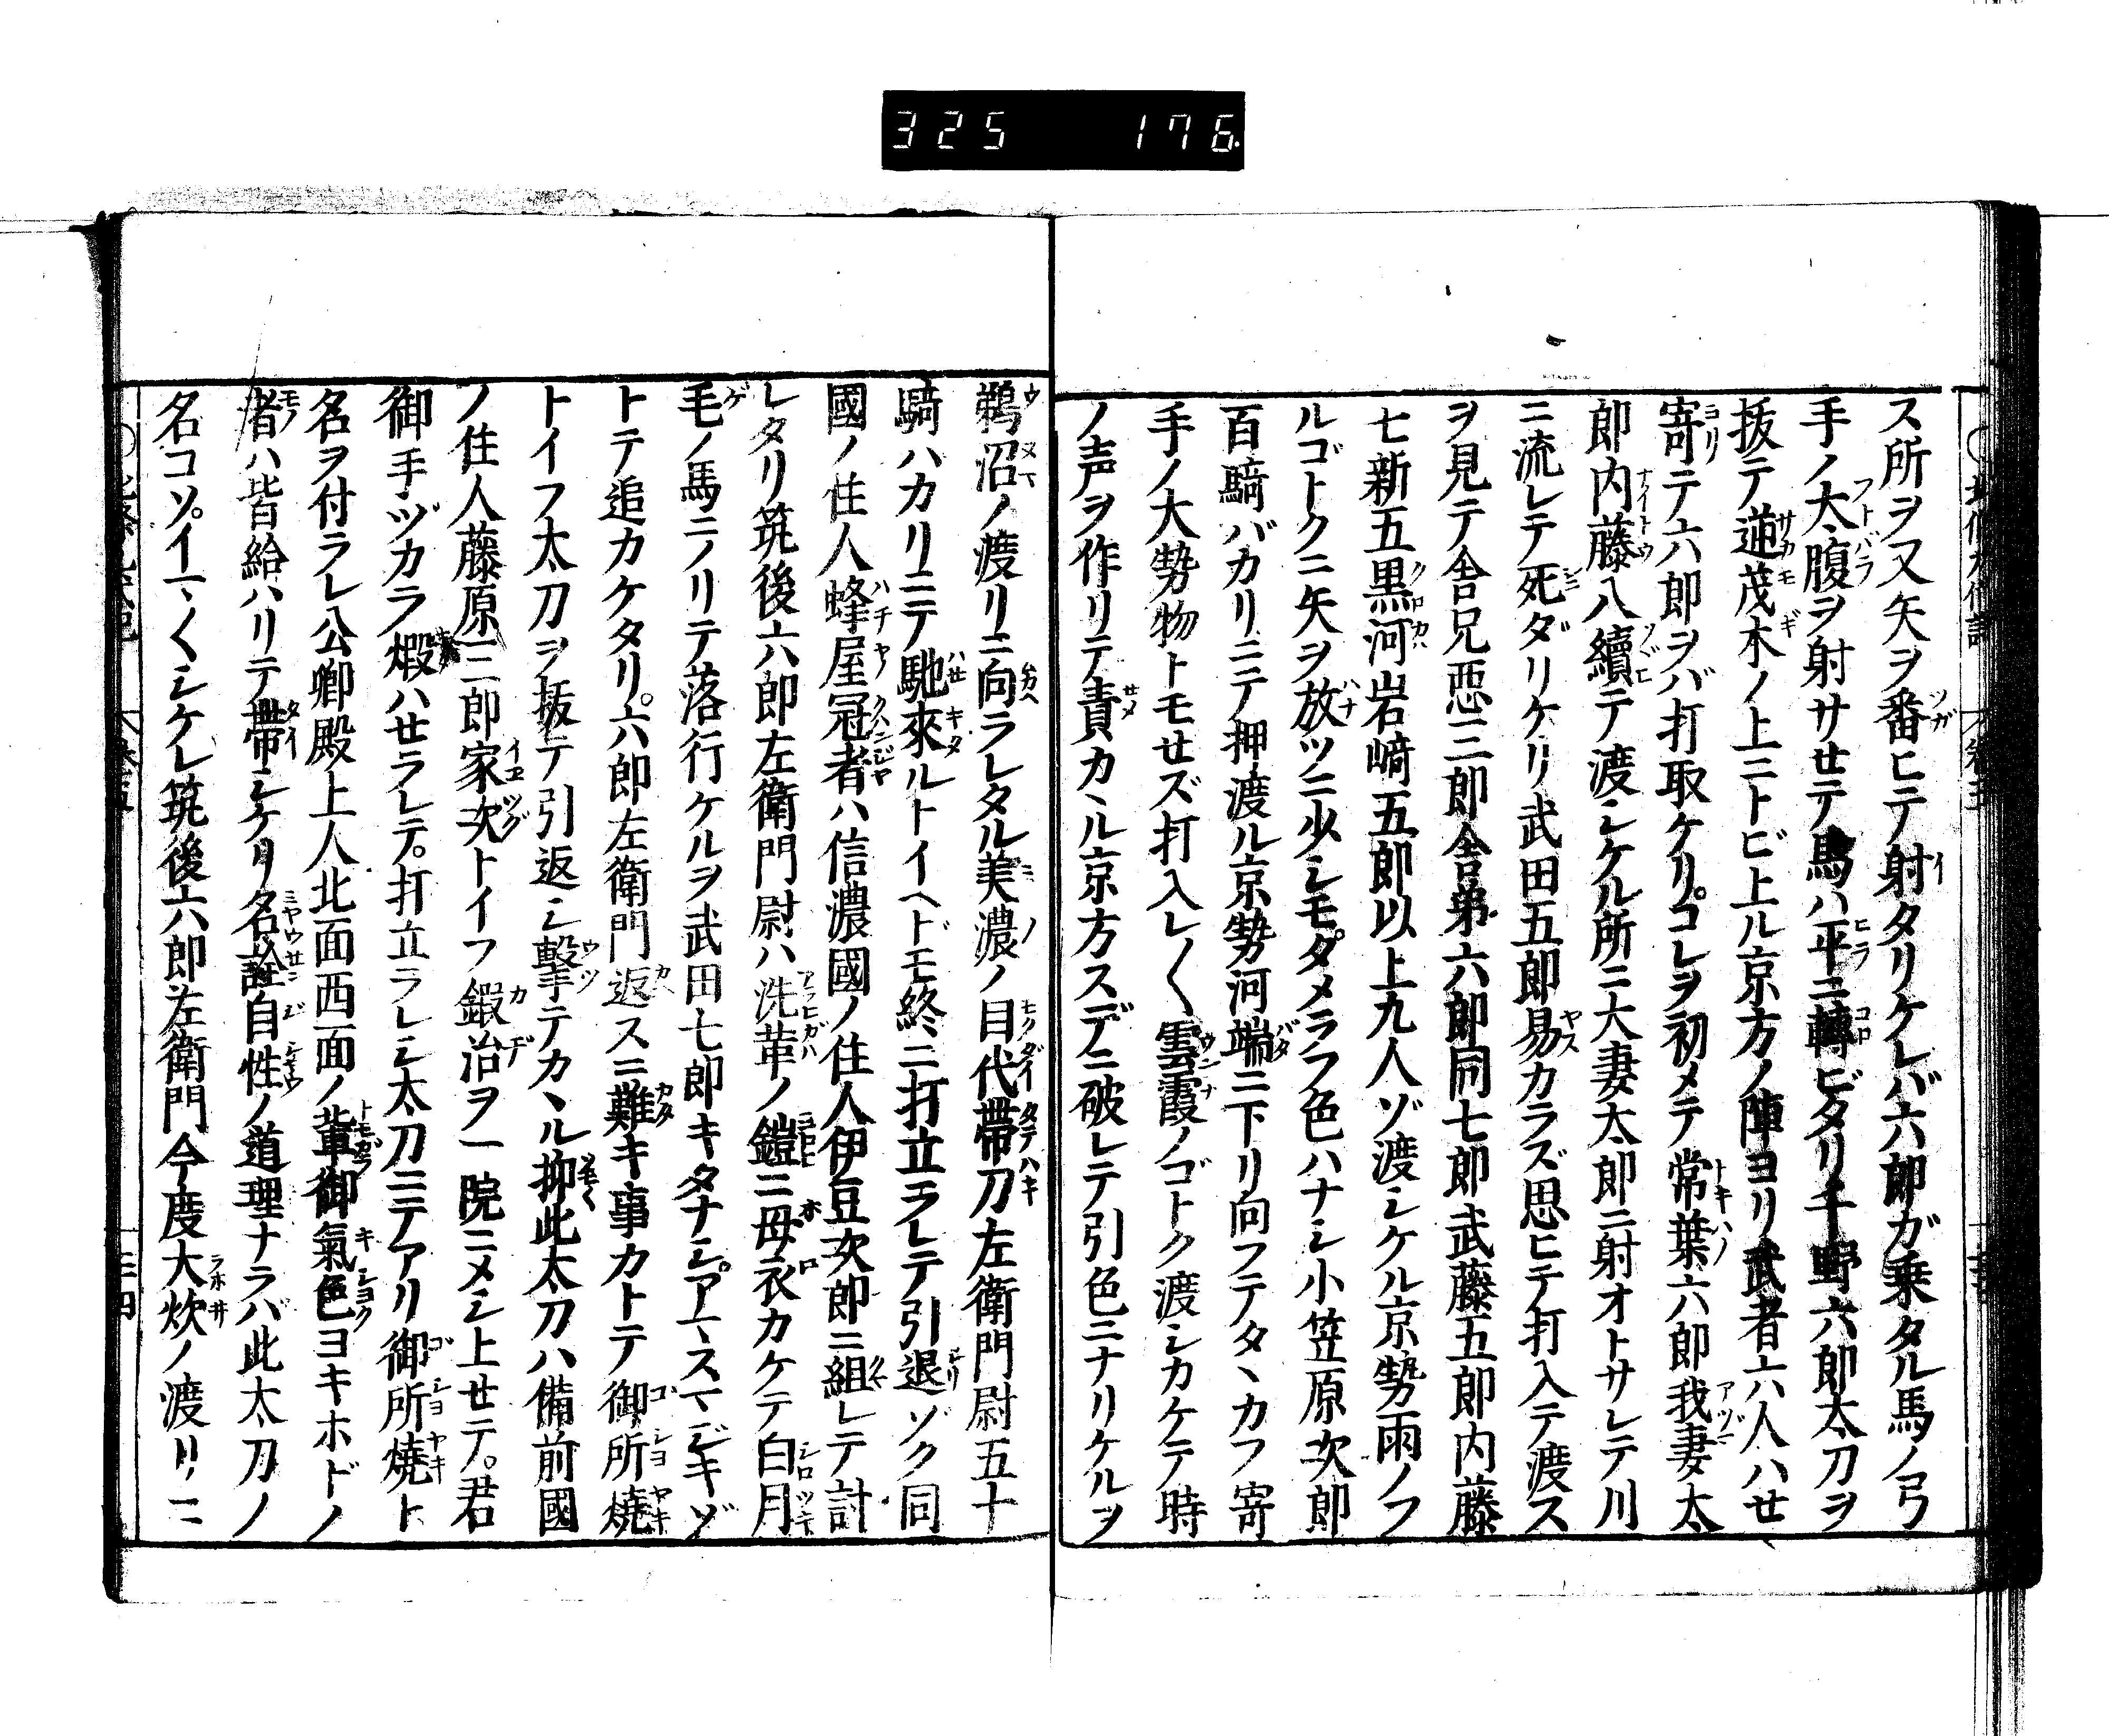 325 176.
ス所ヲ又矢ヲ番ヒテ射タリケレバ六郎ガ乗タル馬ノ弓
手ノ大腹ヲ射サセテ馬ハ平ニ轉ビタリ千野六郎太刀ヲ
抜テ逆茂木ノ上ニトビ上ル京方ノ陣ヨリ武者六人ハせ
寄テ六郎ヲバ打取ケリ。コレヲ初メテ常葉六郎我妻太
郎内藤八續テ渡シケル所ニ大妻太郎ニ射オトサレテ川
ニ流レテ死ダリケリ武田五郎易カラズ思ヒテ打入テ渡ス
ヲ見テ舎兄悪三郎舎弟六郎同七郎武藤五郎内藤
七新五黒河岩﨑五郎以上九人ゾ渡シケル京勢雨ノフ
ルゴトクニ矢ヲ放ツニ少シモタメラフ色ハナシ小笠原次郎
百騎バカリニテ押渡ル京勢河端ニ下リ向フテタヽカフ寄
手ノ大勢物トモせズ打入レ〱雲霞ノゴトク渡シカケテ時
ノ声ヲ作リテ責カヽル京方スデニ破レテ引色ニナリケルヲ
鵜沼ノ渡リニ向ラレタル美濃ノ目代帶刀左衛門尉五十
騎ハカリニテ馳來ルトイヘドモ終ニ打立ラレテ引退ゾク同
國ノ住人蜂屋冠者ハ信濃國ノ住人伊豆次郎ニ組レテ討
レタリ筑後六郎左衛門尉ハ洗革ノ鎧ニ母衣カケテ白月
毛ノ馬ニノリテ落行ケルヲ武田七郎キタナシアマスマジキゾ
トテ追カケタリ。六郎左衛門返スニ難キ事カトテ御所燒
トイフ太刀ヲ抜テ引返シ撃テカヽル抑此太刀ハ備前國
ノ住人藤原三郎家次トイフ鍛冶ヲ一院ニメシ上せテ。君
御手ヅカラ煆ハせラレテ。打立ラレシ太刀ニテアリ御所燒ト
名ヲ付ラレ公卿殿上人北面西面ノ輩御氣色ヨキホドノ
者ハ皆給ハリテ帶シケリ名詮自性ノ道理ナラバ此太刀ノ
名コソイマ〱シケレ筑後六郎左衛門今度大炊ノ渡リニ